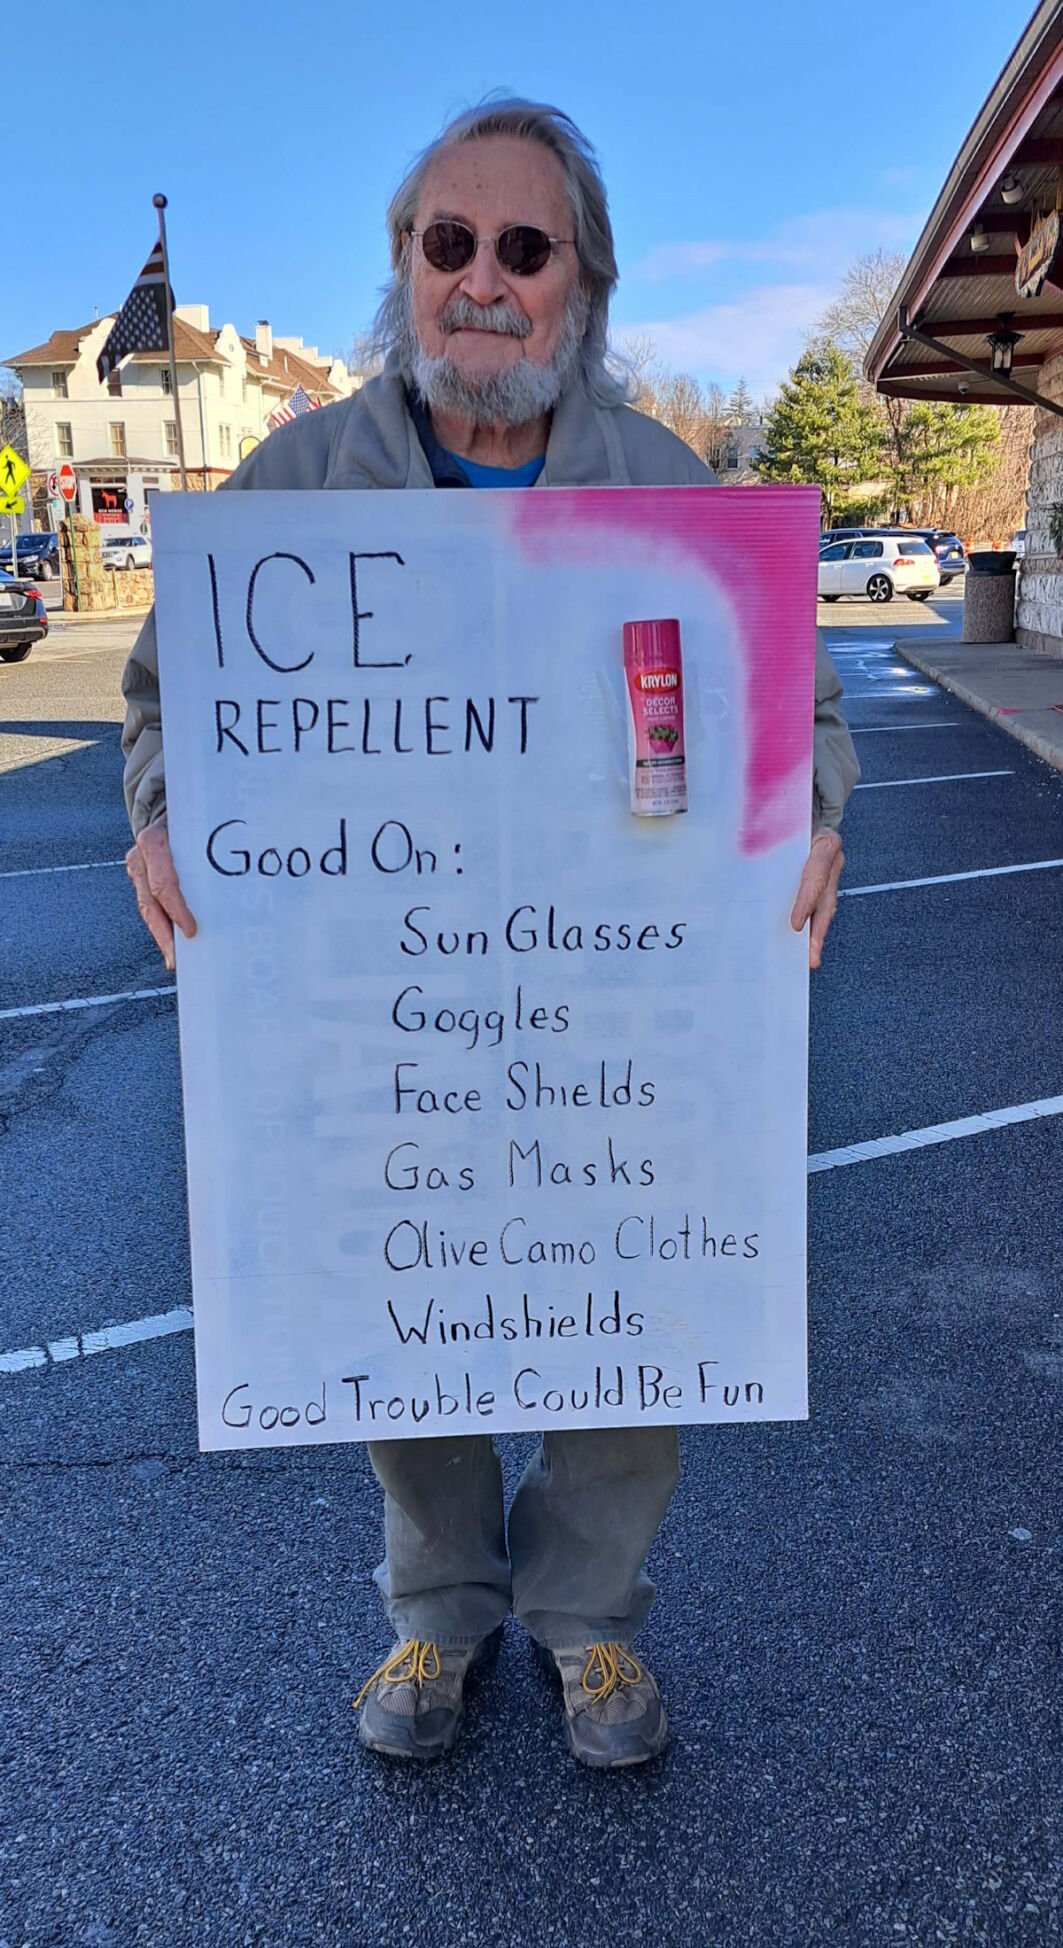 ICE
REPELLENT
KRYLON
DÉCOR
SELECTS
Good On:
Sun Glasses
Goggles
Face Shields
Gas Masks
Olive Camo Clothes
Windshields
Good Trouble Could Be Fun
STOP